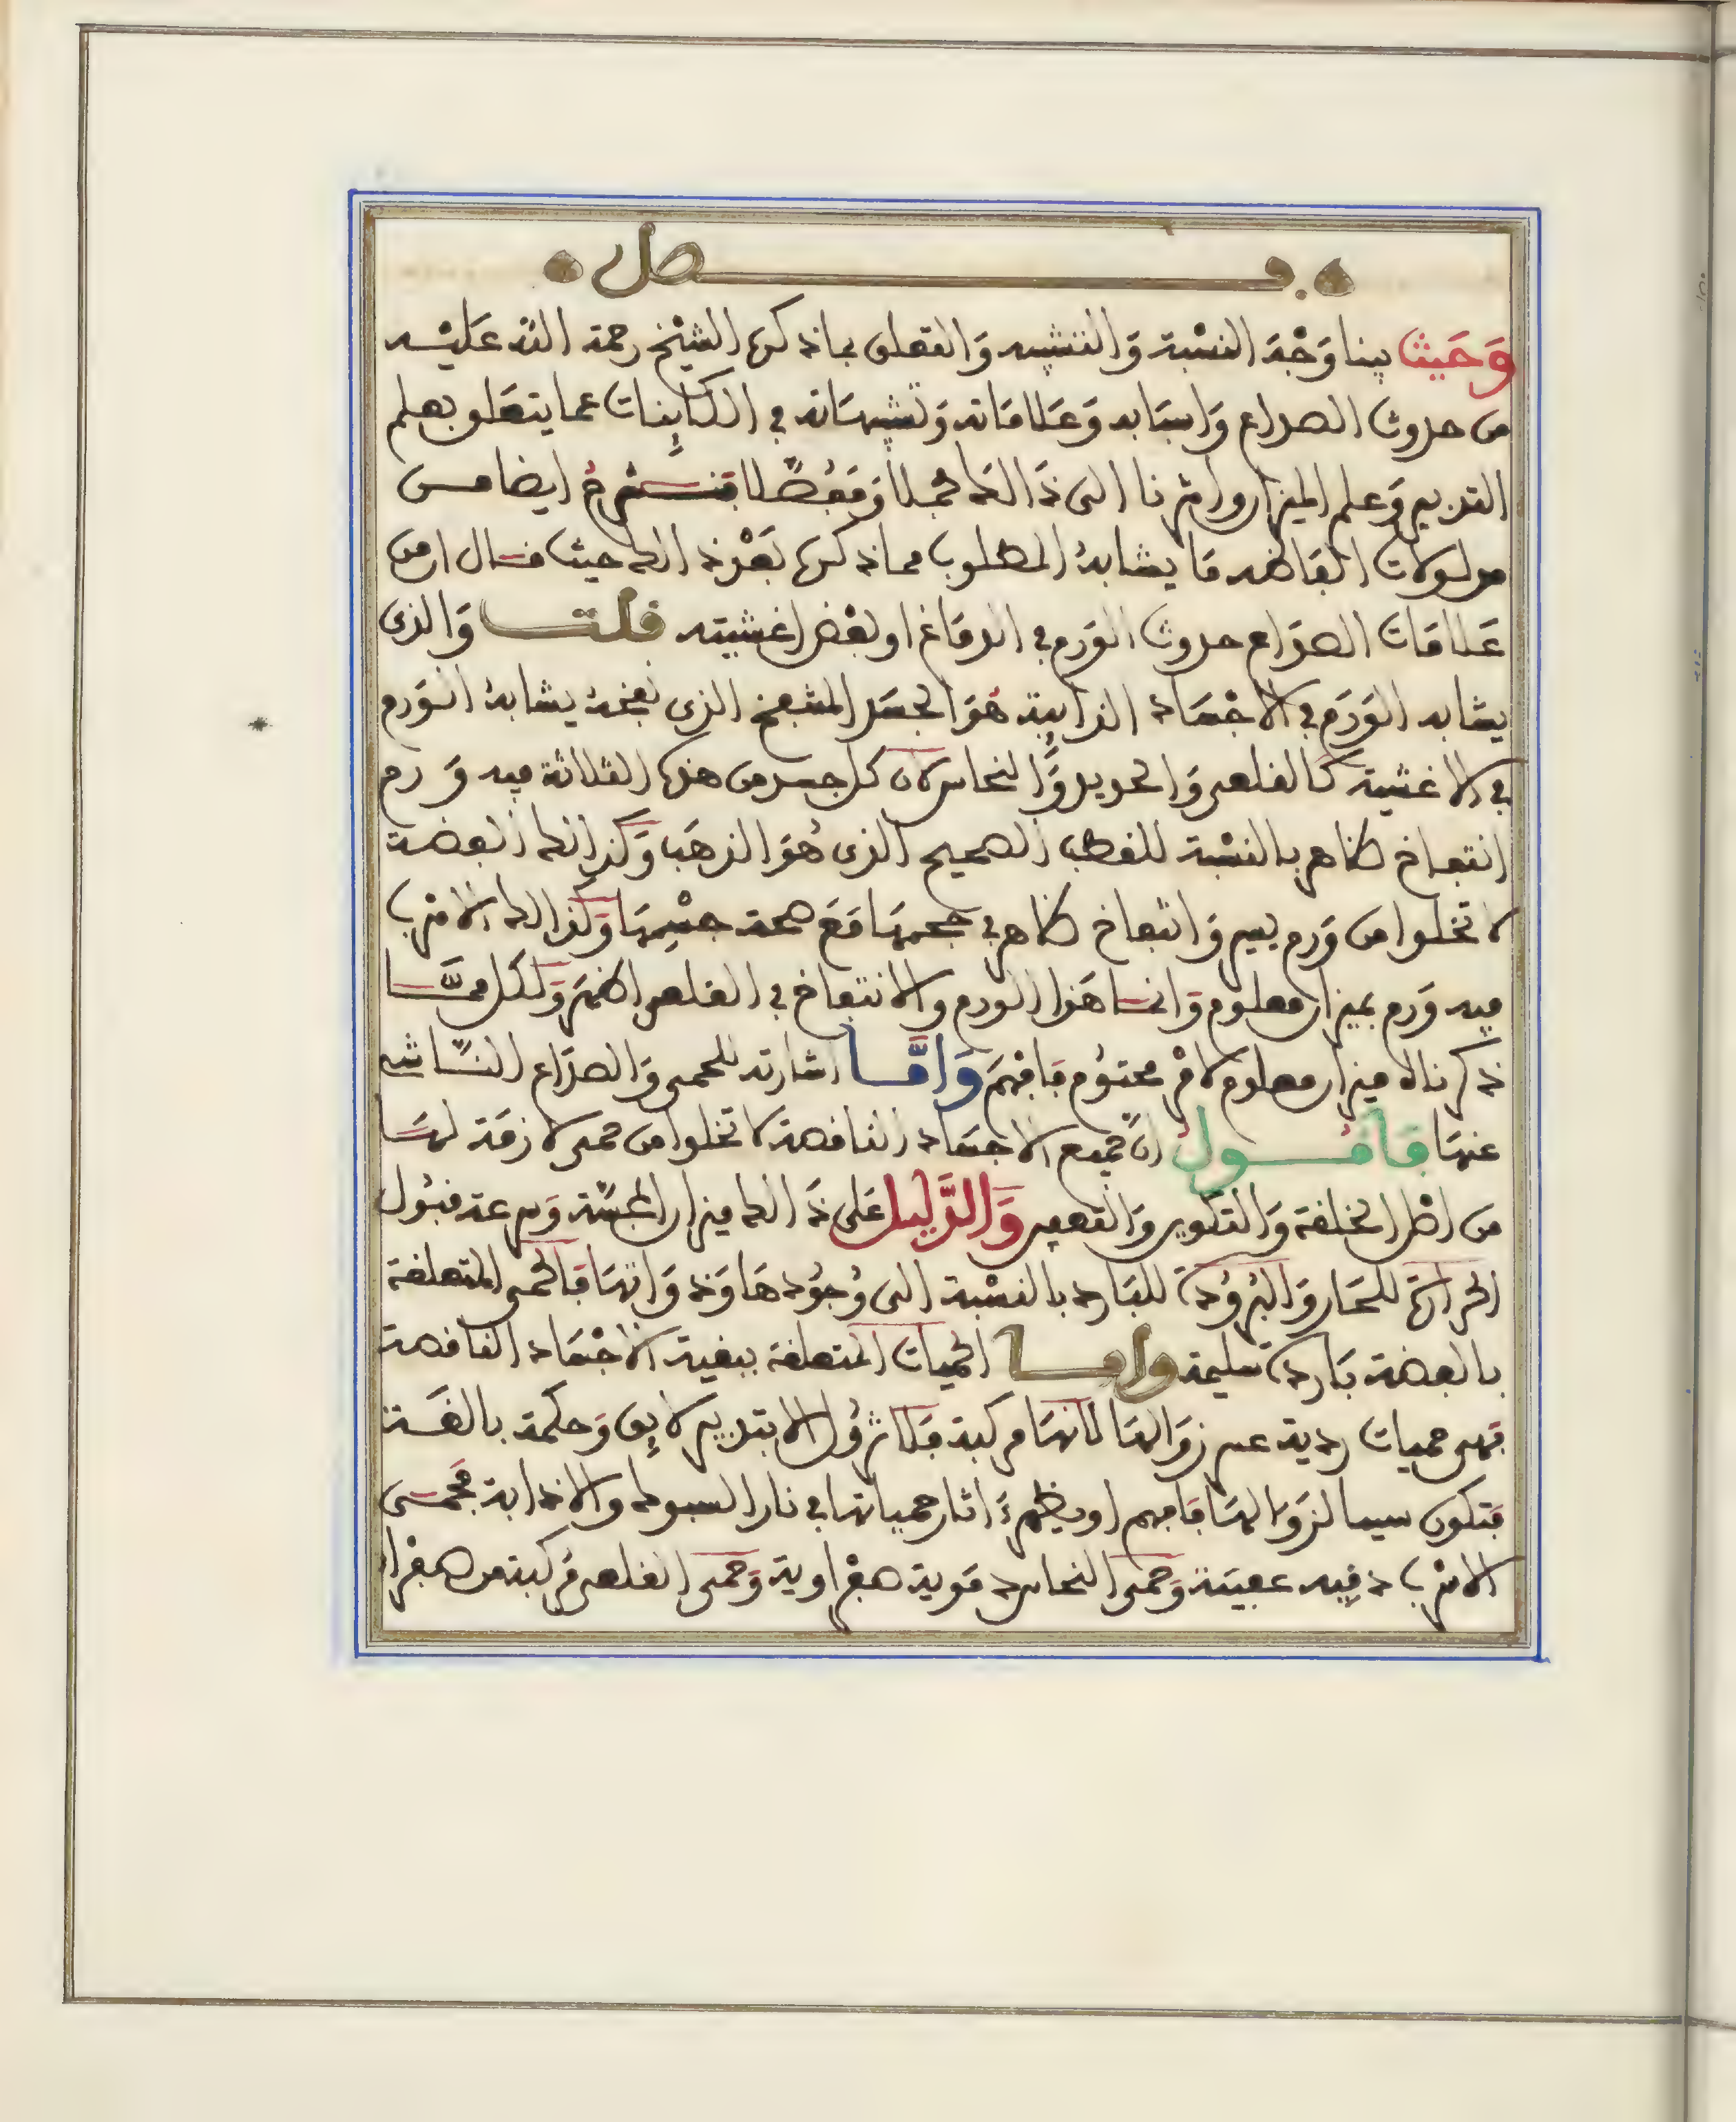 فصل
وَحَيث بينا وَجْهَ النسْبة وَالتشبيه وَالتعلق بما ذكره الشيْخ رحمة الله عَليْه
من حدوث الصداع وَاسبَابه وَعَلامَاته وَتشبيهَاته في الكاينات عما يتعَلق بعلم
التدبير وَعلم الميزان واشرنا الى ذَالكَ مجملا وَمفصلا فنستخرج ايضا مــن
مدلولات الفاظه مَا يشابهُ المطلوب مما ذكره بَعْد ذالك حيث قــال ان من
عَلامَات الصدَاع حدوث الوَرَم في الدمَاغ او بعْض اغشيته قلت وَالذى
يشابه الوَرَم في الاجْسَاد الذايبة هُوَ الجسَد المنتفخ الذى نفخهُ يشابهُ الوَرم
في الاغشية كَالقلعى وَالحديد وَالنحاس لان كل جسد من هذه الثلاثة فيه وَرم
انتفاخ ظاهر بالنسْبة للقطب الصحيح الذى هُوَ الذهَب وَكذالك الفضة
لا تخلوا من وَرم يسير وَانتفاخ ظاهر في حجمهَا مَعَ صحة جسْمِهَا وَكذالك الاسْرب
فيه وَرم بميزان معلوم وَانمــا هَذا الورم والانتفاخ في القلعى اظهَر وَلكل ممَّــا
ذكرناه ميزان معلوم لامْر محتوُم فافهَم وَامَّــا اشارته للحمى وَالصدَاع النــاشى
عنهَا فَاقُــولُ ان جميع الاجسَاد الناقصة لا تخلوا من حمى لازمَة لهَــا
من اصْل الخلقة وَالتكوين وَالتعفين وَالدَّليل عَلى ذَالك ميزان المجسَّة وَسرعة قبُول
الحرارة للحَار وَالبُرُودة للبَارد بالنسْبة الى وُجوُدهَا وَذوَاتهَا فَالحمى المتعلقة
بالفضة بَاردة سليمة وامــا الحميات المتعلقة ببقية الاجْسَاد الناقصة
فهى حميات ردية عسر زوَالهَا لانهَا مركبة فَلا تزُول الا بتدبير لايِق وَحكمة بالغَــة
فتكون سببا لزوَالهَا فافهم او يظهرُ ءَاثار حمياتها في نار السبوك والاذابة فحمــى
الاسْرب دفينه عفينة وَحمى النحاس دمَوية صفْراوية وَحمى القلعى مُركبة من صفرا